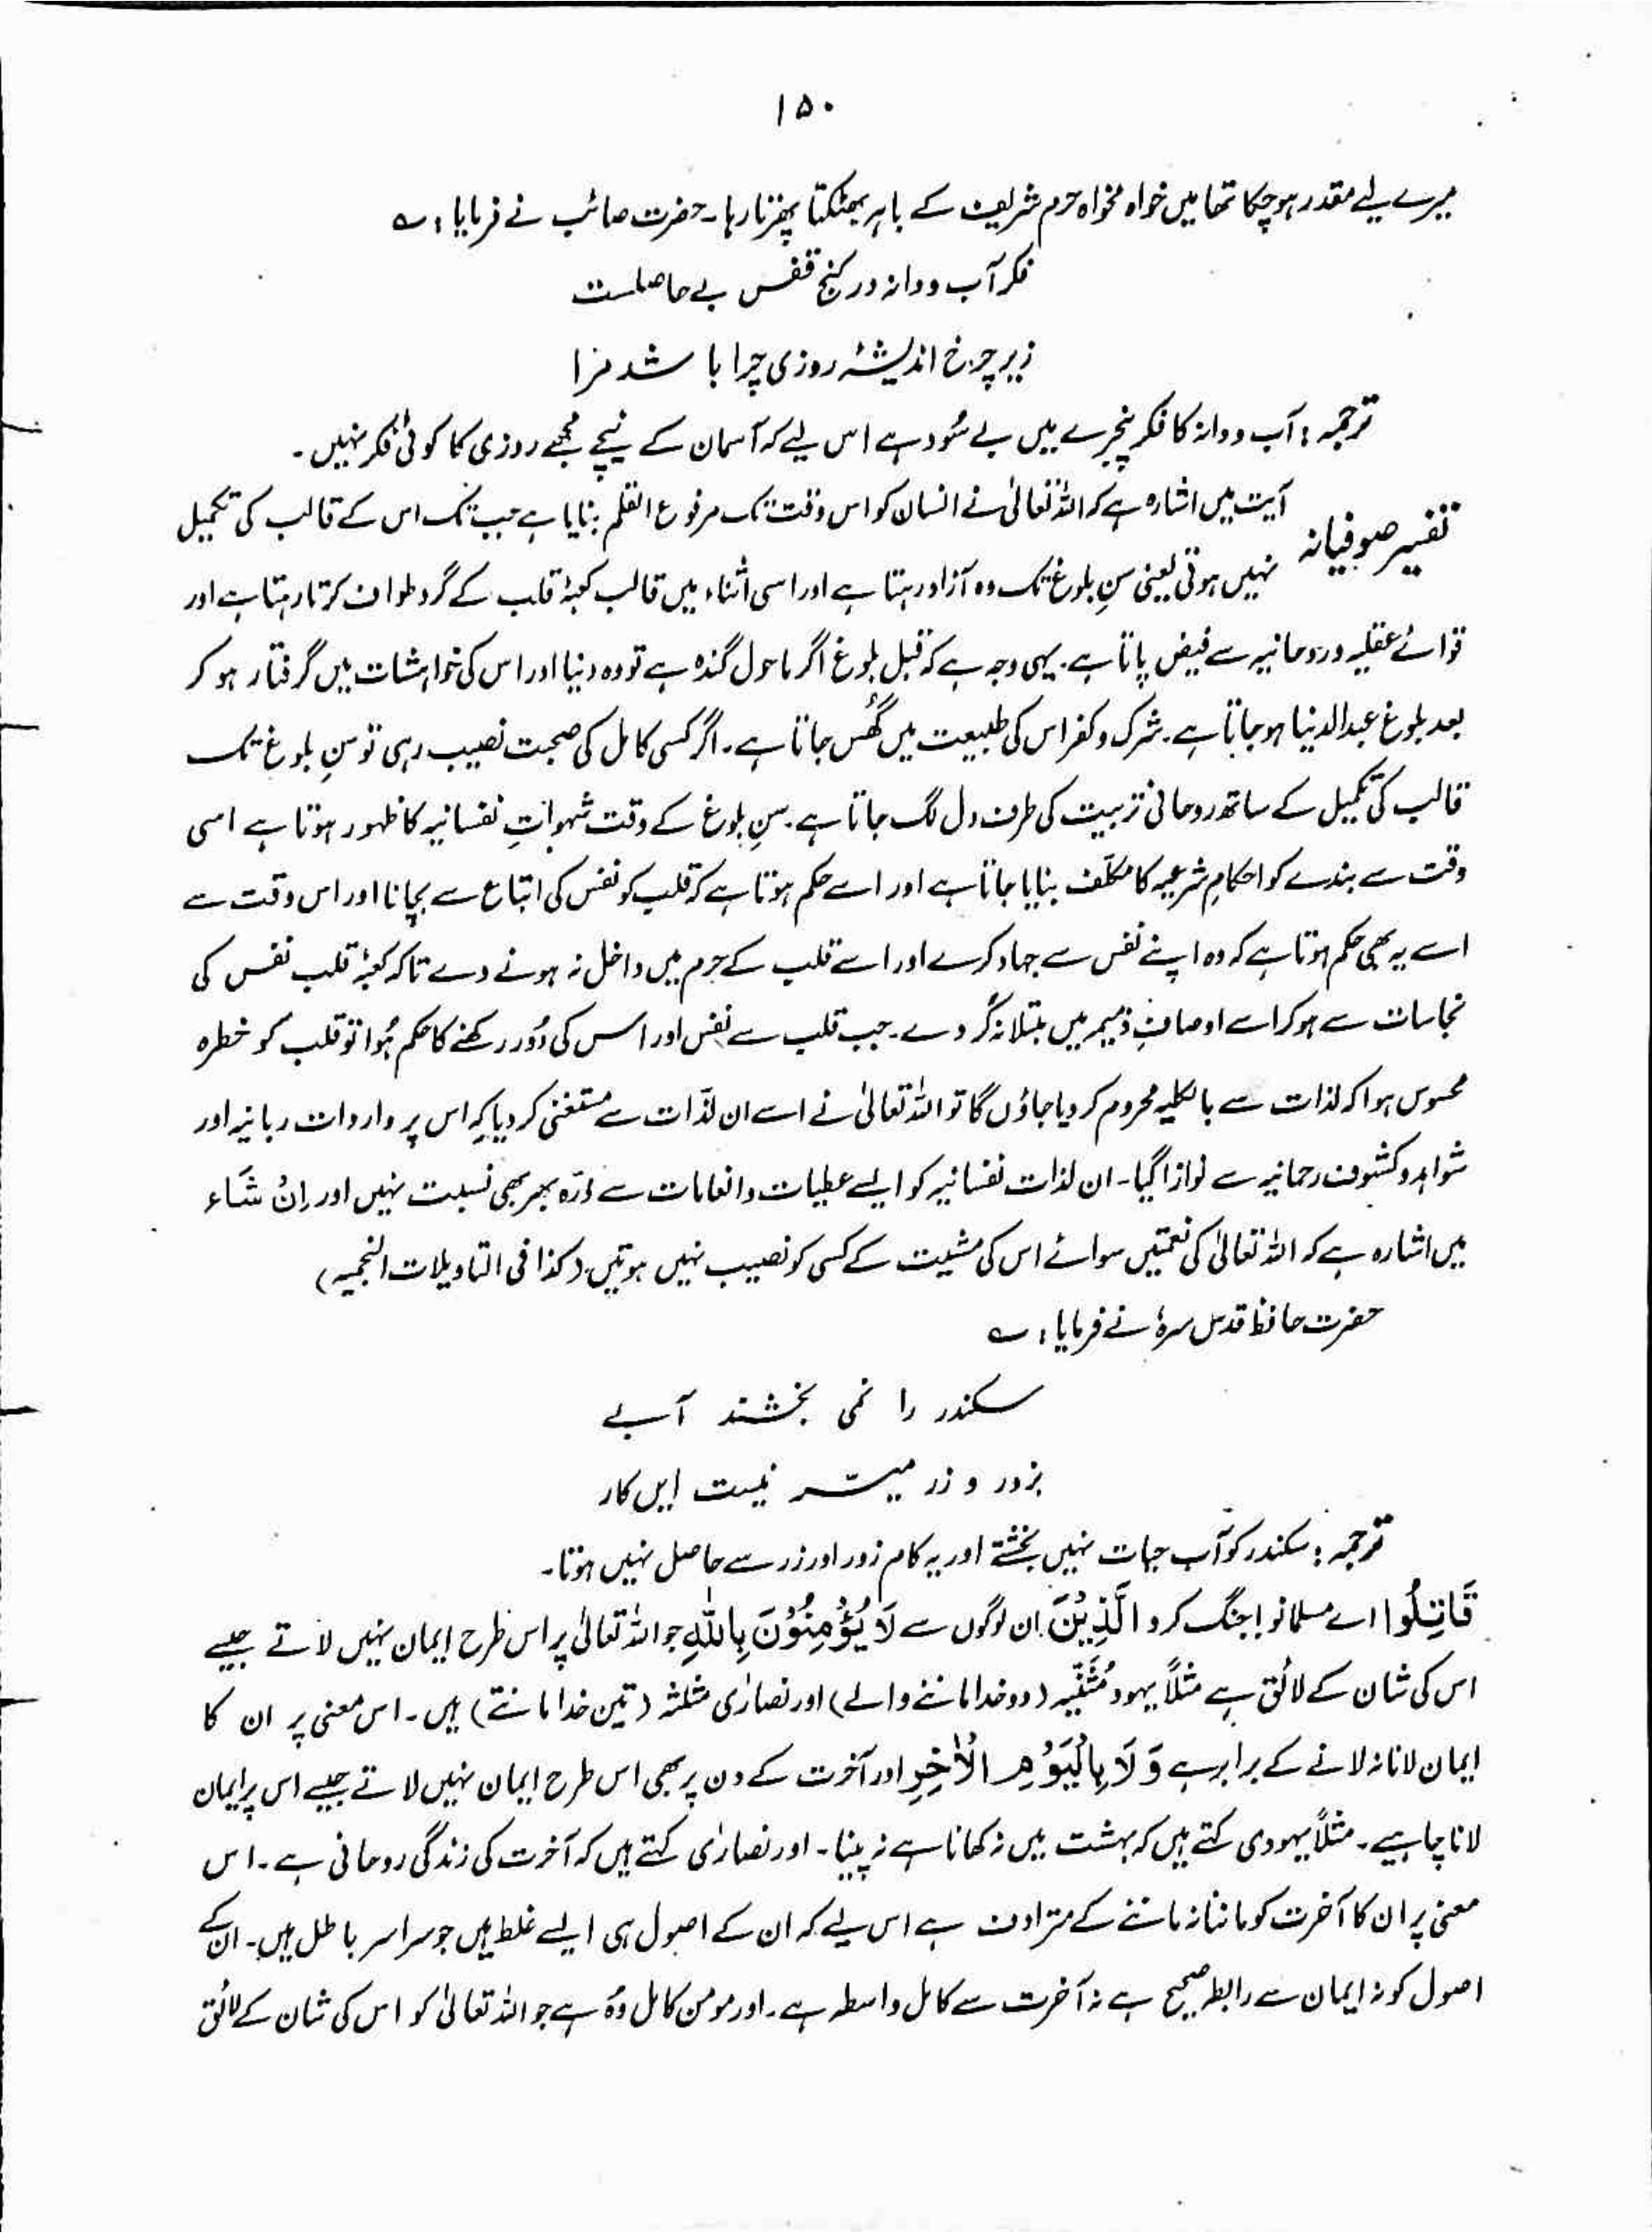 ۱۵۰
میرے لیے مقدر ہوچکا تھا میں خواہ مخواہ حرم شریف کے باہر بھٹکتا پھرتا رہا۔ حضرت صائب نے فرمایا : ؎
فکر آب و دانہ در کنج قفس بے حاصلست
زیر چرخ اندیشۂ روزی چرا باشد مرا
ترجمہ : آب و دانہ کا فکر پنجرے میں بے سُود ہے اس لیے کہ آسمان کے نیچے مجھے روزی کا کوئی فکر نہیں۔
تفسیر صوفیانہ آیت میں اشارہ ہے کہ اللہ تعالیٰ نے انسان کو اس وقت تک مرفوع القلم بنایا ہے جب تک اس کے قالب کی تکمیل
نہیں ہوتی یعنی سنِ بلوغ تک وہ آزاد رہتا ہے اور اسی اثناء میں قالب کعبۂ قلب کے گرد طواف کرتا رہتا ہے اور
قوائے عقلیہ و روحانیہ سے فیض پاتا ہے۔ یہی وجہ ہے کہ قبل بلوغ اگر ماحول گندہ ہے تو وہ دنیا اور اس کی خواہشات میں گرفتار ہو کر
بعد بلوغ عبدالدنیا ہوجاتا ہے۔ شرک و کفر اس کی طبیعت میں گھُس جاتا ہے۔ اگر کسی کامل کی صحبت نصیب رہی تو سنِ بلوغ تک
قالب کی تکمیل کے ساتھ روحانی تربیت کی طرف دل لگ جاتا ہے۔ سنِ بلوغ کے وقت شہواتِ نفسانیہ کا ظہور ہوتا ہے اسی
وقت سے بندے کو احکامِ شرعیہ کا مکلّف بنایا جاتا ہے اور اسے حکم ہوتا ہے کہ قلب کو نفس کی اتباع سے بچانا اور اس وقت سے
اسے یہ بھی حکم ہوتا ہے کہ وہ اپنے نفس سے جہاد کرے اور اسے قلب کے حرم میں داخل نہ ہونے دے تاکہ کعبۂ قلب نفس کی
نجاسات سے ہوکر اسے اوصافِ ذمیمہ میں مبتلا نہ کر دے۔ جب قلب سے نفس اور اس کی دُور رکھنے کا حکم ہُوا تو قلب کو خطرہ
محسوس ہوا کہ لذات سے بالکلیہ محروم کر دیا جاؤں گا تو اللہ تعالیٰ نے اسے ان لذّات سے مستغنی کر دیا کہ اس پر واردات ربانیہ اور
شواہد و کشوف رحمانیہ سے نوازا گیا۔ ان لذات نفسانیہ کو ایسے عطیات و انعامات سے ذرّہ بھر بھی نسبت نہیں اور اِنْ شَاء
میں اشارہ ہے کہ اللہ تعالیٰ کی نعمتیں سوائے اس کی مشیت کے کسی کو نصیب نہیں ہوتیں (کذا فی التاویلات النجمیہ)
حضرت حافظ قدس سرہٗ نے فرمایا : ؎
سکندر را نمی بخشند آبے
بزور و زر میسّر نیست ایں کار
ترجمہ : سکندر کو آب حیات نہیں بخشتے اور یہ کام زور اور زر سے حاصل نہیں ہوتا۔
قَاتِلُوا اے مسلمانو! جنگ کرو الَّذِیْنَ ان لوگوں سے لَا یُؤْمِنُوْنَ بِاللّٰہِ جو اللہ تعالیٰ پر اس طرح ایمان نہیں لاتے جیسے
اس کی شان کے لائق ہے مثلاً یہود مُثَنِّیہ (دو خدا ماننے والے) اور نصارٰی مثلثہ (تین خدا مانتے) ہیں۔ اس معنی پر ان کا
ایمان لانا نہ لانے کے برابر ہے وَلَا بِالْیَوْمِ الْاٰخِرِ اور آخرت کے دن پر بھی اس طرح ایمان نہیں لاتے جیسے اس پر ایمان
لانا چاہیے۔ مثلاً یہودی کہتے ہیں کہ بہشت میں نہ کھانا ہے نہ پینا۔ اور نصارٰی کہتے ہیں کہ آخرت کی زندگی روحانی ہے۔ اس
معنی پر ان کا آخرت کو ماننا نہ ماننے کے مترادف ہے اس لیے کہ ان کے اصول ہی ایسے غلط ہیں جو سراسر باطل ہیں۔ ان کے
اصول کو نہ ایمان سے رابطہ صحیح ہے نہ آخرت سے کامل واسطہ ہے۔ اور مومن کامل وُہ ہے جو اللہ تعالیٰ کو اس کی شان کے لائق